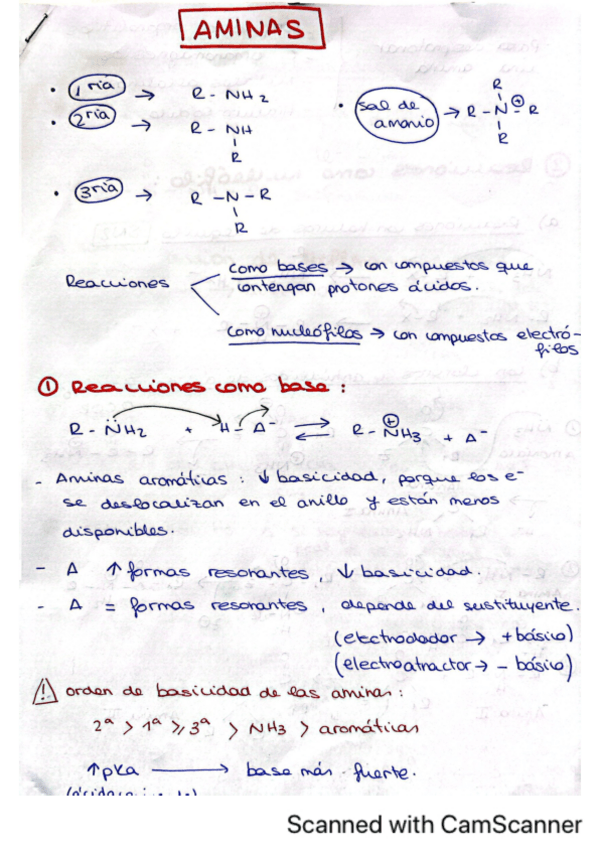 AMINAS
· 1ria → R - NH2
· sal de amonio → R - N⊕ - R
R
R
· 2ria → R - NH
R
· 3ria → R - N - R
R
Reacciones
como bases → con compuestos que
contengan protones ácidos.
como nucleófilos → con compuestos electró-
filos
① Reacciones como base :
R - N̈H2 + H - A⁻ ⇌ R - N⊕H3 + A⁻
- Aminas aromáticas : ↓ basicidad, porque los e⁻
se deslocalizan en el anillo y están menos
disponibles.
- A ↑ formas resonantes, ↓ basicidad.
- A = formas resonantes, depende del sustituyente.
(electrodador → + básico)
(electroatractor → - básico)
⚠ orden de basicidad de las aminas :
2ª > 1ª ≥ 3ª > NH3 > aromáticas
↑pKa → base más fuerte.
Scanned with CamScanner